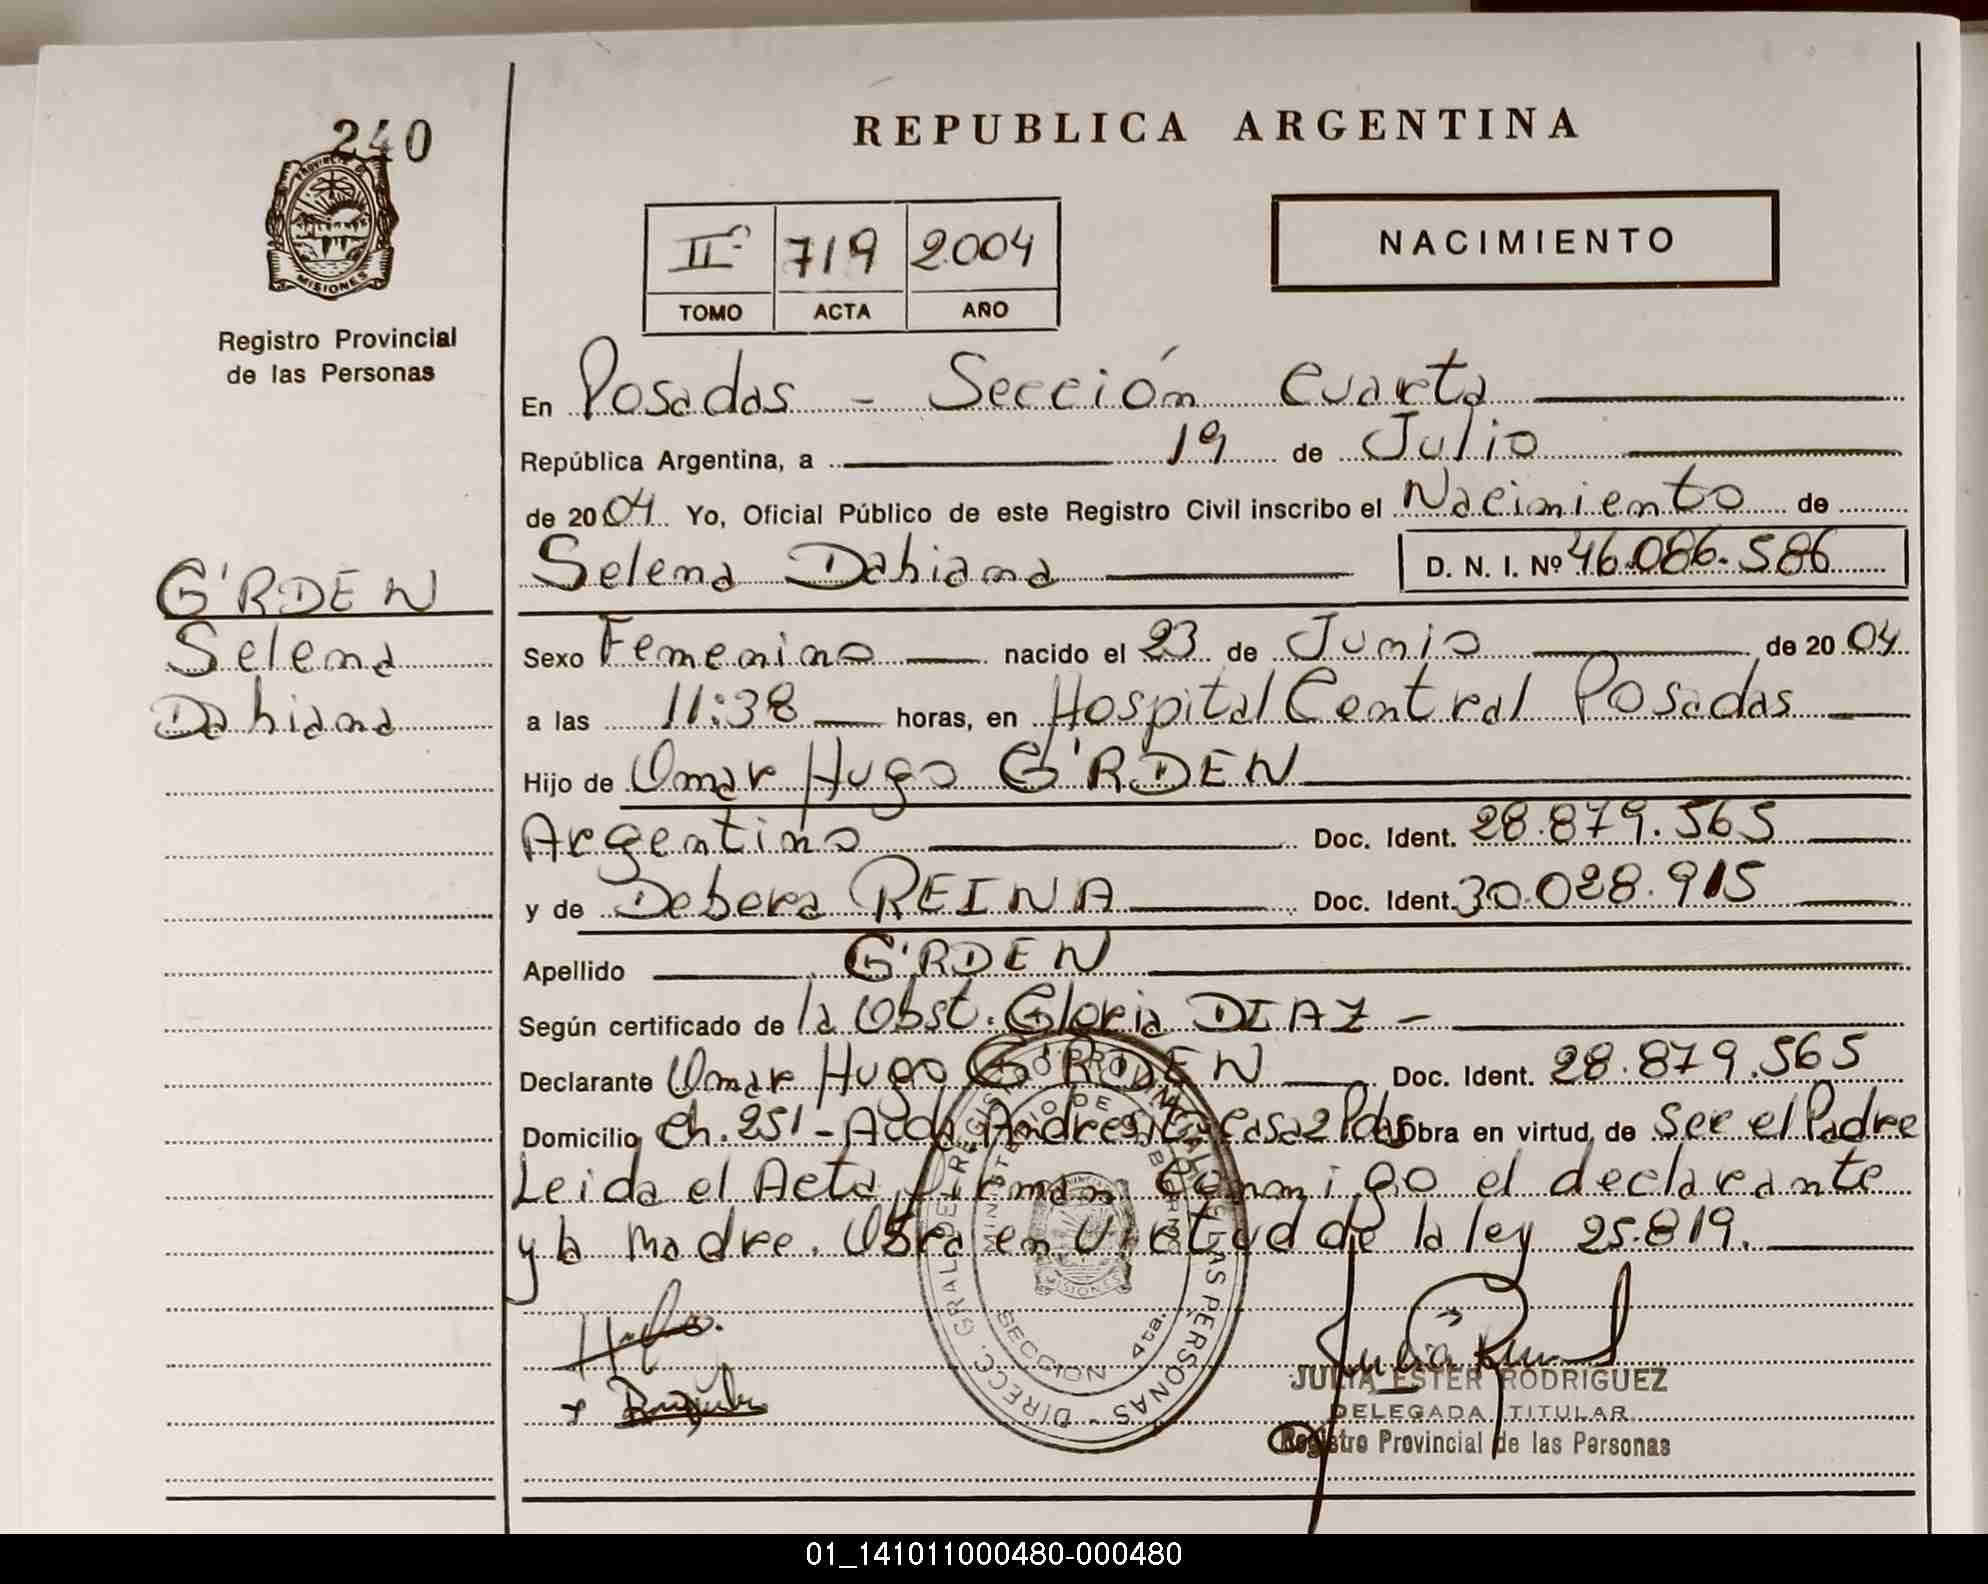 240
REPUBLICA ARGENTINA
PROVINCIA DE
MISIONES
Registro Provincial
de las Personas
IIº 719 2004
TOMO ACTA AÑO
NACIMIENTO
En Posadas - Sección Cuarta
República Argentina, a 19 de Julio
de 2004 Yo, Oficial Público de este Registro Civil inscribo el Nacimiento de
Selena Dahiana D. N. I. Nº 46.086.586
G'RDEN
Selena
Dahiana
Sexo Femenino nacido el 23 de Junio de 2004
a las 11:38 horas, en Hospital Central Posadas
Hijo de Omar Hugo G'RDEN
Argentino Doc. Ident. 28.879.565
y de Debora REINA Doc. Ident. 30.028.915
Apellido G'RDEN
Según certificado de la Obst. Gloria DIAZ -
Declarante Omar Hugo G'RDEN Doc. Ident. 28.879.565
Domicilio Ch. 251 - Acda Andresito Casa 2 Pdas Obra en virtud de Ser el Padre
Leida el Acta, Firman Conmigo el declarante
y la madre. Obra en Virtud de la ley 25.819.
DIRECC. GRAL DE REGISTRO PROVINCIAL DE LAS PERSONAS
MINISTERIO DE GOBIERNO
MISIONES
SECCION 4ta.
JULIA ESTER RODRIGUEZ
DELEGADA TITULAR
Registro Provincial de las Personas
01_141011000480-000480